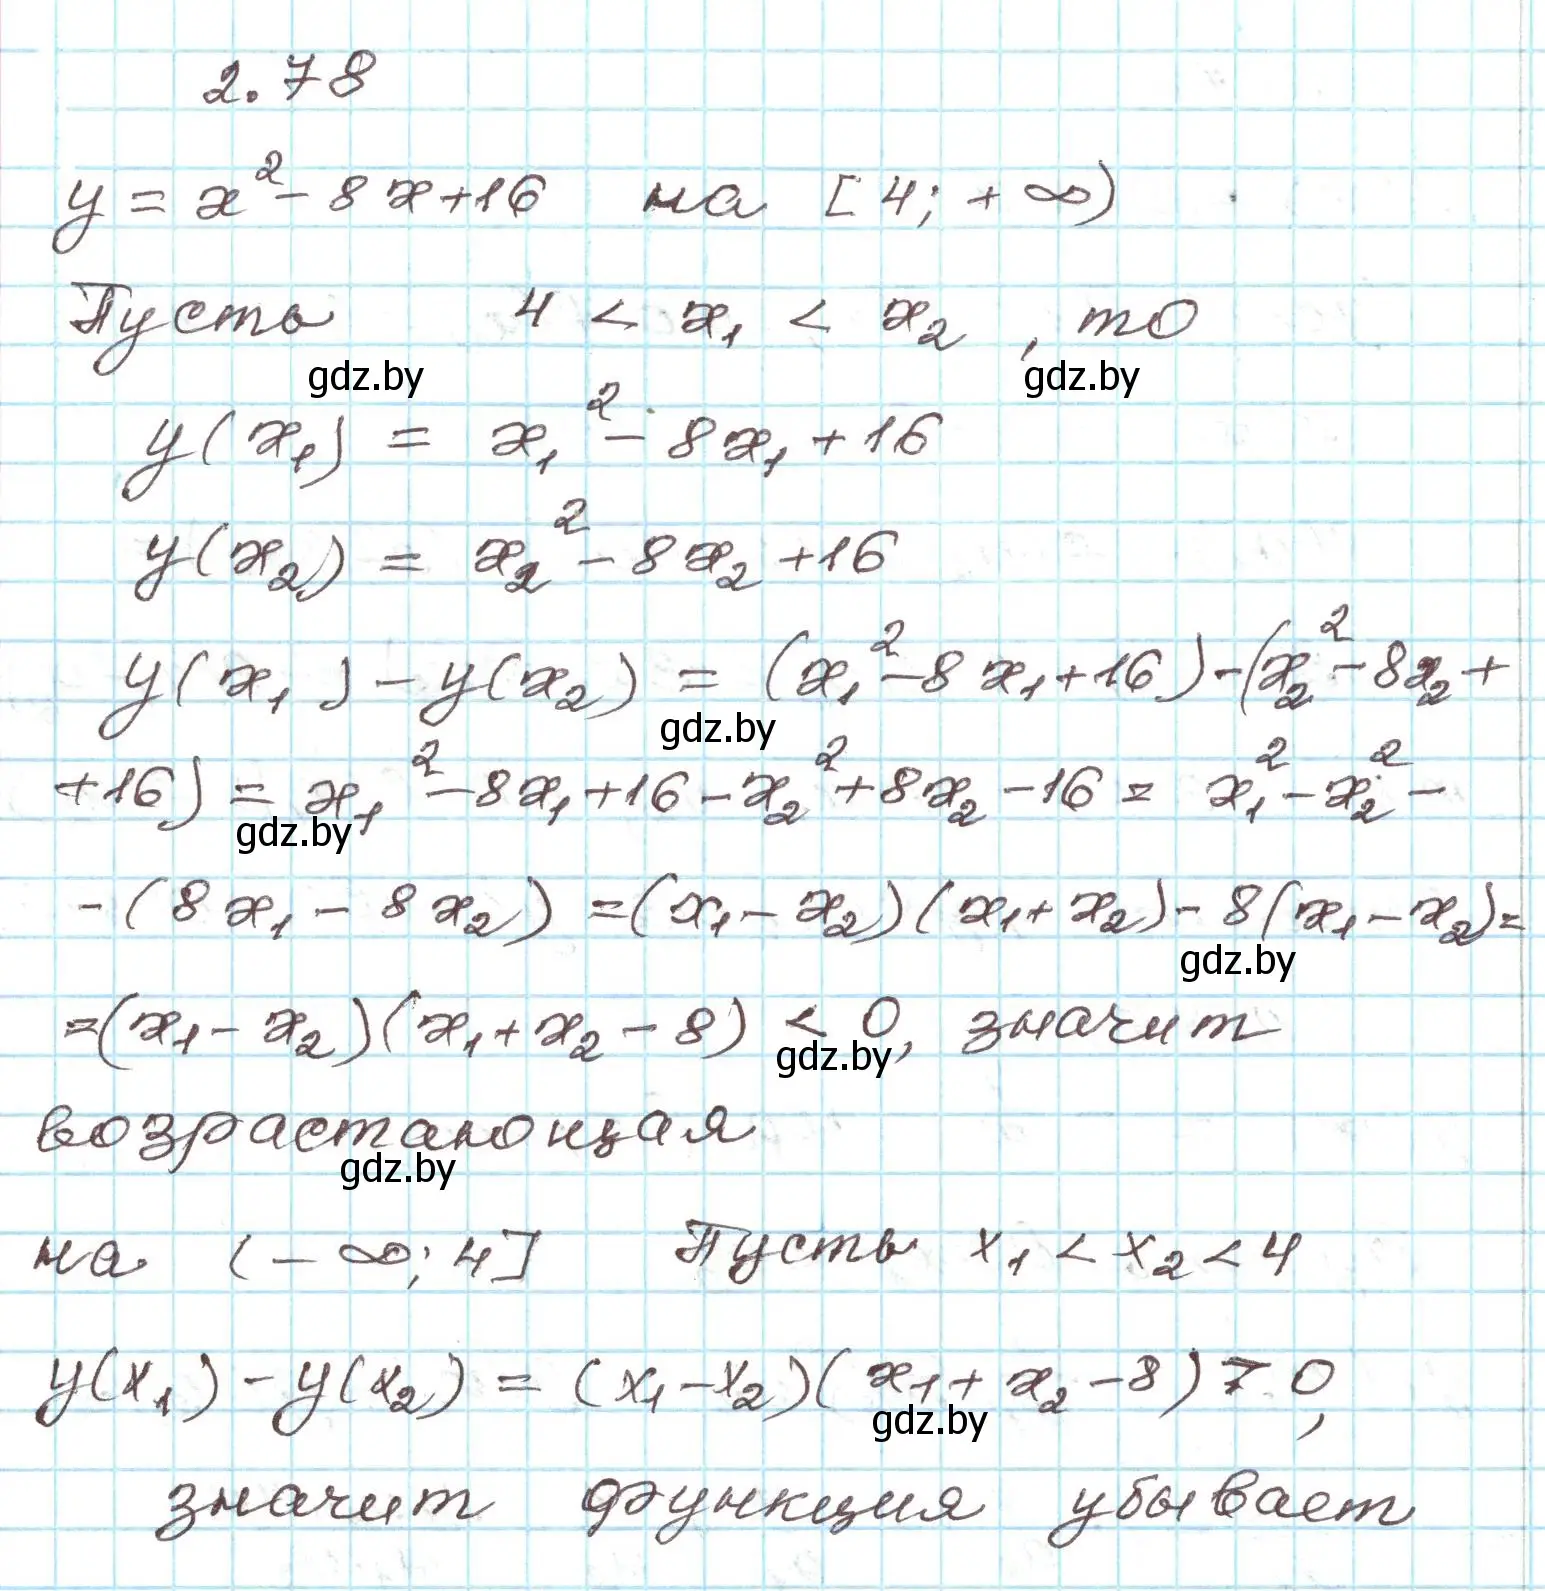 2.78
y = x² - 8x + 16 на [4; + ∞)
Пусть 4 < x₁ < x₂, то
gdz.by gdz.by
y(x₁) = x₁² - 8x₁ + 16
y(x₂) = x₂² - 8x₂ + 16
y(x₁) - y(x₂) = (x₁² - 8x₁ + 16) - (x₂² - 8x₂ +
gdz.by
+16) = x₁² - 8x₁ + 16 - x₂² + 8x₂ - 16 = x₁² - x₂² -
gdz.by
- (8x₁ - 8x₂) = (x₁ - x₂)(x₁ + x₂) - 8(x₁ - x₂) =
gdz.by
= (x₁ - x₂)(x₁ + x₂ - 8) < 0, значит
gdz.by
возрастающая
gdz.by
на (- ∞; 4] Пусть x₁ < x₂ < 4
y(x₁) - y(x₂) = (x₁ - x₂)(x₁ + x₂ - 8) > 0,
gdz.by
значит функция убывает